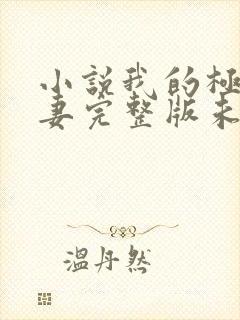 小說我的極
妻完整版未
溫丹然